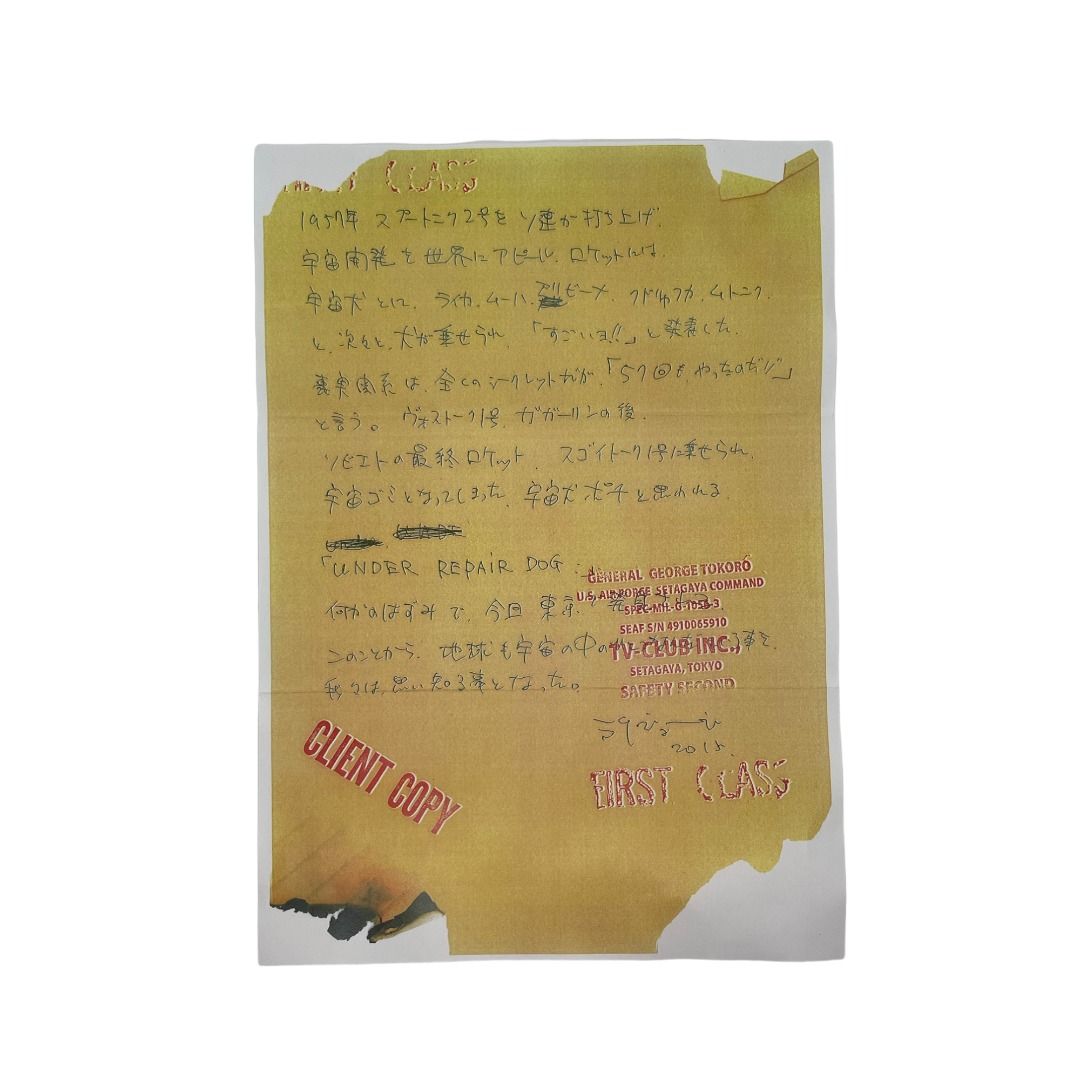 CLASS
1957年 スプートニク2号を ソ連が打ち上げ、
宇宙開発を世界にアピール、ロケットには、
宇宙犬とし、ライカ、ムーハ、ビーメ、クドリャフカ、ムトニク、
と、次々と、犬が乗せられ、「すごいヨ!!」と発表した、
裏事関系は、全くのシークレットだが、「57回も、やったのだ!!」
と言う。 ヴォストーク1号、ガガーリンの後、
ソビエトの最終ロケット、スゴイトーク1号に乗せられ、
宇宙ゴミとなってしまった、宇宙犬ポチと思われる
「UNDER REPAIR DOG
何かのはずみで、今日 東京で発見される、
このことから、地球も宇宙の中の 事を、
我々は、思い知る事となった。
2015.
GENERAL GEORGE TOKORO
U.S. AIR FORCE SETAGAYA COMMAND
SPEC-MIL-G-1056-3
SEAF S/N 4910065910
TV-CLUB INC.,
SETAGAYA, TOKYO
SAFETY SECOND
CLIENT COPY
FIRST CLASS